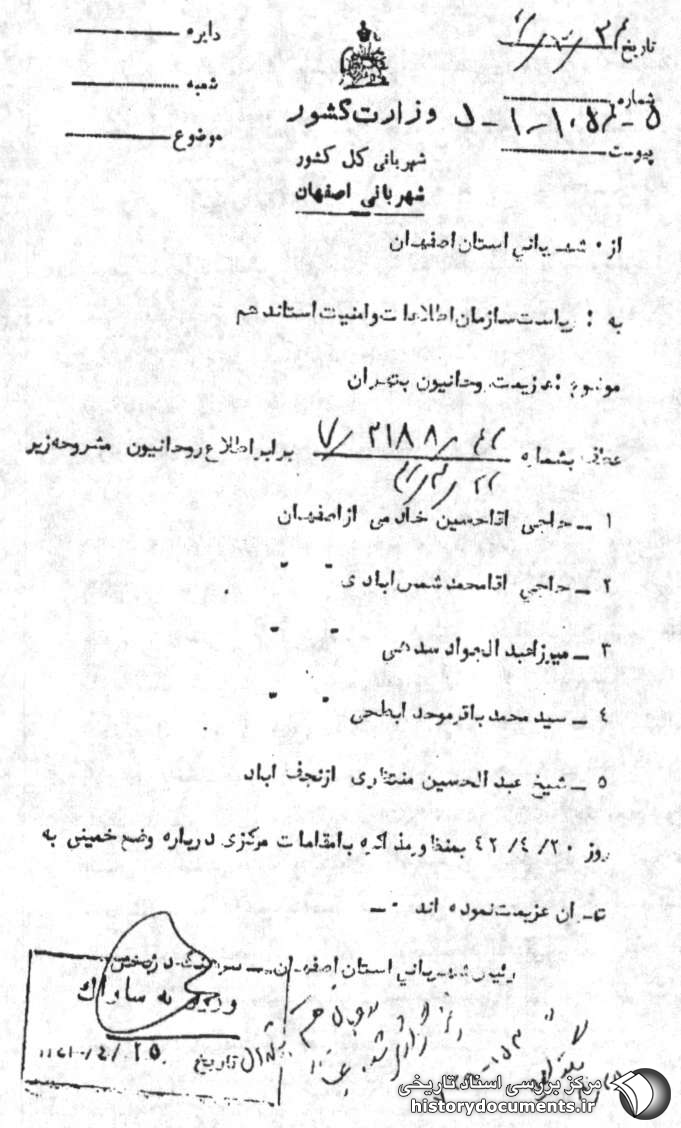 تاریخ
شماره ۵ - ۱۰۵۴ - ۱ - د
پیوست
دایره
شعبه
موضوع
وزارت کشور
شهربانی کل کشور
شهربانی اصفهان
از : شهربانی استان اصفهان
به : ریاست سازمان اطلاعات و امنیت استان دهم
موضوع : عزیمت روحانیون بتهران
عطف بشماره برابر اطلاع روحانیون مشروحه زیر
۱ ــ حاجی اقا حسین خادمی از اصفهان
۲ ــ حاجی اقا محمد شمس ابادی " "
۳ ــ میرزا عبد الجواد سدهی " "
٤ ــ سید محمد باقر موحد ابطحی " "
۵ ــ شیخ عبد الحسین منتظری از نجف اباد
روز ۲۰/ ٤/ ٤۲ بمنظور مذاکره با مقامات مرکزی درباره وضع خمینی به
تهران عزیمت نموده اند ۰ــ
رئیس شهربانی استان اصفهان ــ سرهنگ
به ساواک
تاریخ
مرکز بررسی اسناد تاریخی
historydocuments.ir